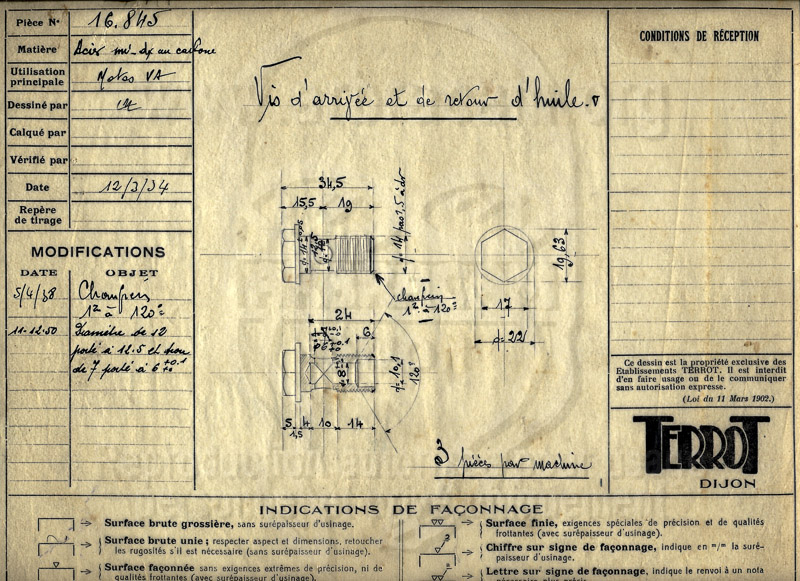 Pièce N° 16.845
Matière Acier mi-dx au carbone
Utilisation principale Motos VA
Dessiné par
Calqué par
Vérifié par
Date 12/3/34
Repère de tirage
MODIFICATIONS
DATE OBJET
5/4/38 Chanfrein
1 à 120°
11-12-50 Diamètre de 12
porté à 12.5 et trou
de 7 porté à 6 +0.1
Vis d'arrivée et de retour d'huile.
CONDITIONS DE RÉCEPTION
34,5
15,5 19
chanfrein
1 à 120°
19,63
17
22
24
6
8
120°
5 4 10 14
1,5
3 pièces par machine
Ce dessin est la propriété exclusive des
Etablissements TERROT. Il est interdit
d'en faire usage ou de le communiquer
sans autorisation expresse.
(Loi du 11 Mars 1902.)
TERROT
DIJON
INDICATIONS DE FAÇONNAGE
Surface brute grossière, sans surépaisseur d'usinage.
Surface brute unie ; respecter aspect et dimensions, retoucher
les rugosités s'il est nécessaire (sans surépaisseur d'usinage).
Surface façonnée sans exigences extrêmes de précision, ni de
qualités frottantes (avec surépaisseur d'usinage).
Surface finie, exigences spéciales de précision et de qualités
frottantes (avec surépaisseur d'usinage).
Chiffre sur signe de façonnage, indique en m/m la suré-
paisseur d'usinage.
Lettre sur signe de façonnage, indique le renvoi à un nota